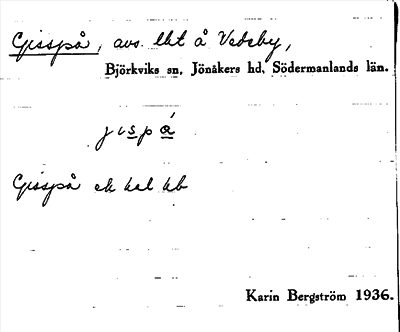 Gisspå, avs. lht å Vedeby,
Björkviks sn, Jönåkers hd, Södermanlands län.
jispǻ
Gisspå ek kal hb
Karin Bergström 1936.